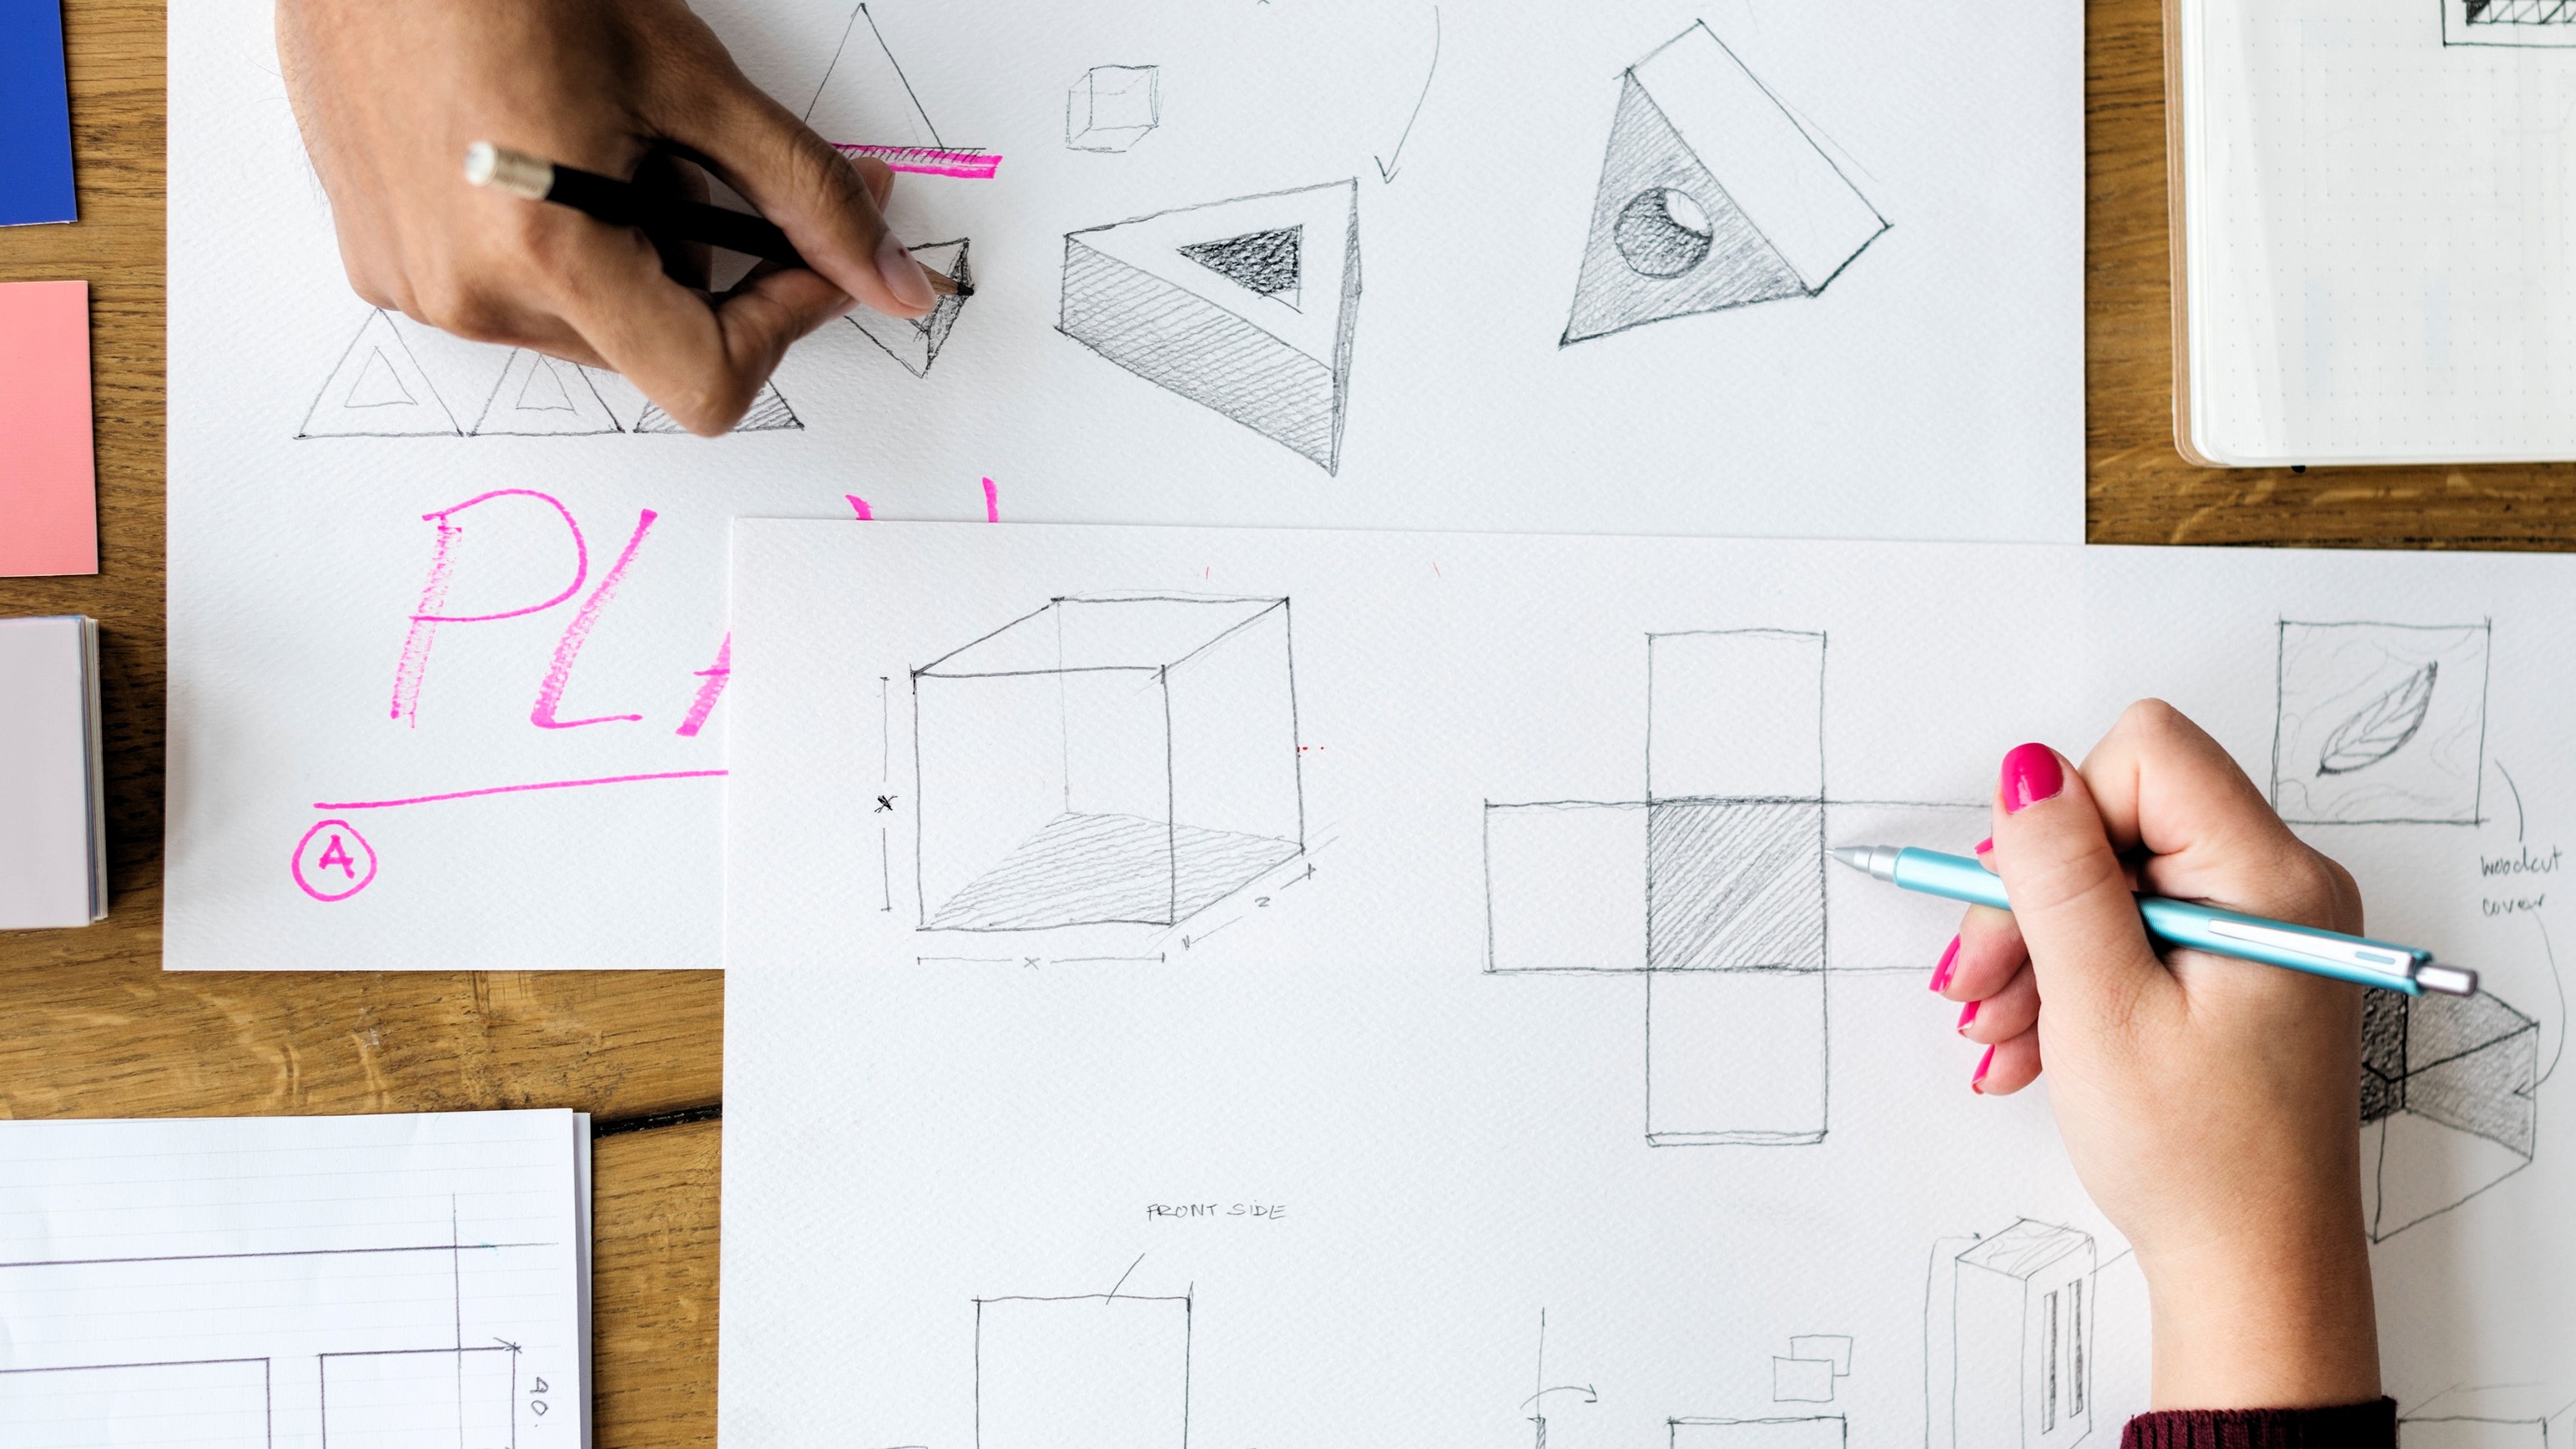 PLA
A
x
x
2
woodcut
cover
FRONT SIDE
40.